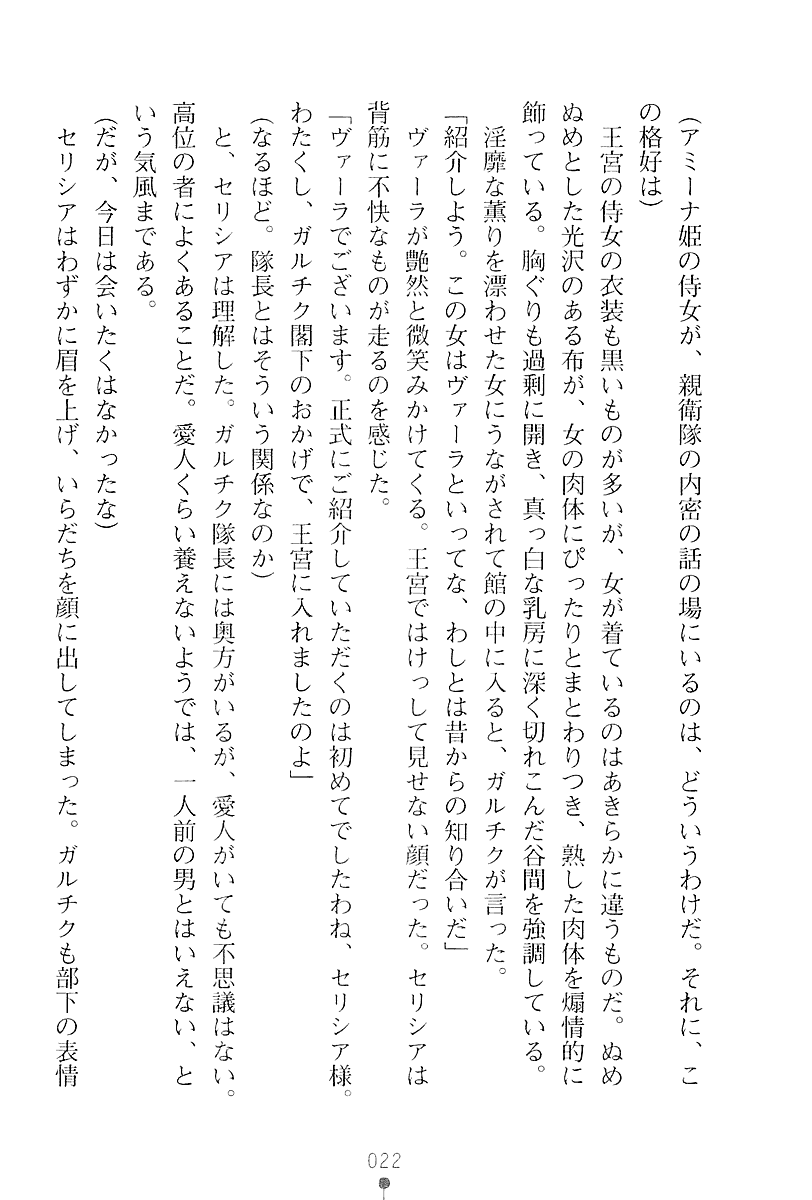 (アミーナ姫の侍女が、親衛隊の内密の話の場にいるのは、どういうわけだ。それに、こ
の格好は)
　王宮の侍女の衣装も黒いものが多いが、女が着ているのはあきらかに違うものだ。ぬめ
ぬめとした光沢のある布が、女の肉体にぴったりとまとわりつき、熟した肉体を煽情的に
飾っている。胸ぐりも過剰に開き、真っ白な乳房に深く切れこんだ谷間を強調している。
　淫靡な薫りを漂わせた女にうながされて館の中に入ると、ガルチクが言った。
「紹介しよう。この女はヴァーラといってな、わしとは昔からの知り合いだ」
　ヴァーラが艶然と微笑みかけてくる。王宮ではけっして見せない顔だった。セリシアは
背筋に不快なものが走るのを感じた。
「ヴァーラでございます。正式にご紹介していただくのは初めてでしたわね、セリシア様。
わたくし、ガルチク閣下のおかげで、王宮に入れましたのよ」
(なるほど。隊長とはそういう関係なのか)
　と、セリシアは理解した。ガルチク隊長には奥方がいるが、愛人がいても不思議はない。
高位の者によくあることだ。愛人くらい養えないようでは、一人前の男とはいえない、と
いう気風まである。
(だが、今日は会いたくはなかったな)
　セリシアはわずかに眉を上げ、いらだちを顔に出してしまった。ガルチクも部下の表情
022